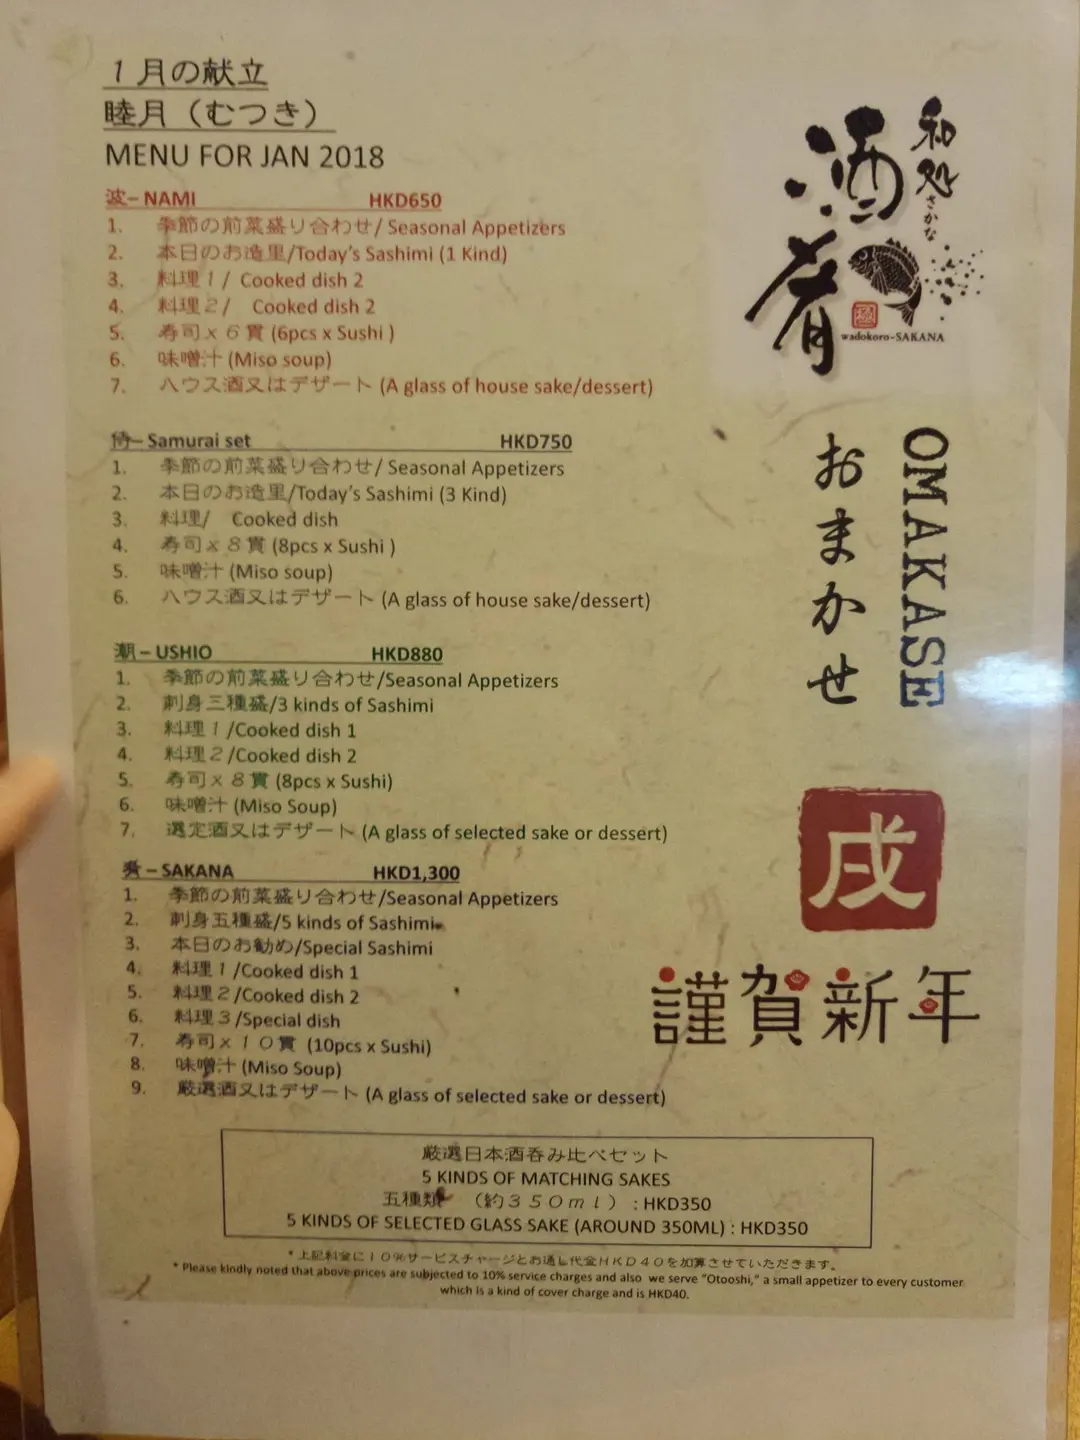 １月の献立
睦月（むつき）
MENU FOR JAN 2018
波– NAMI HKD650
1. 季節の前菜盛り合わせ/ Seasonal Appetizers
2. 本日のお造里/Today's Sashimi (1 Kind)
3. 料理１/ Cooked dish 2
4. 料理２/ Cooked dish 2
5. 寿司ｘ６貫 (6pcs x Sushi )
6. 味噌汁 (Miso soup)
7. ハウス酒又はデザート (A glass of house sake/dessert)
侍– Samurai set HKD750
1. 季節の前菜盛り合わせ/ Seasonal Appetizers
2. 本日のお造里/Today's Sashimi (3 Kind)
3. 料理/ Cooked dish
4. 寿司ｘ８貫 (8pcs x Sushi )
5. 味噌汁 (Miso soup)
6. ハウス酒又はデザート (A glass of house sake/dessert)
潮– USHIO HKD880
1. 季節の前菜盛り合わせ/Seasonal Appetizers
2. 刺身三種盛/3 kinds of Sashimi
3. 料理１/Cooked dish 1
4. 料理２/Cooked dish 2
5. 寿司ｘ８貫 (8pcs x Sushi)
6. 味噌汁 (Miso Soup)
7. 選定酒又はデザート (A glass of selected sake or dessert)
肴 – SAKANA HKD1,300
1. 季節の前菜盛り合わせ/Seasonal Appetizers
2. 刺身五種盛/5 kinds of Sashimi
3. 本日のお勧め/Special Sashimi
4. 料理１/Cooked dish 1
5. 料理２/Cooked dish 2
6. 料理３/Special dish
7. 寿司ｘ１０貫 (10pcs x Sushi)
8. 味噌汁 (Miso Soup)
9. 厳選酒又はデザート (A glass of selected sake or dessert)
厳選日本酒呑み比べセット
5 KINDS OF MATCHING SAKES
五種類 （約３５０ｍｌ）: HKD350
5 KINDS OF SELECTED GLASS SAKE (AROUND 350ML) : HKD350
*上記料金に１０％サービスチャージとお通し代金ＨＫＤ４０を加算させていただきます。
* Please kindly noted that above prices are subjected to 10% service charges and also we serve "Otooshi," a small appetizer to every customer
which is a kind of cover charge and is HKD40.
和処さかな
酒肴
wadokoro-SAKANA
OMAKASE
おまかせ
戌
謹賀新年